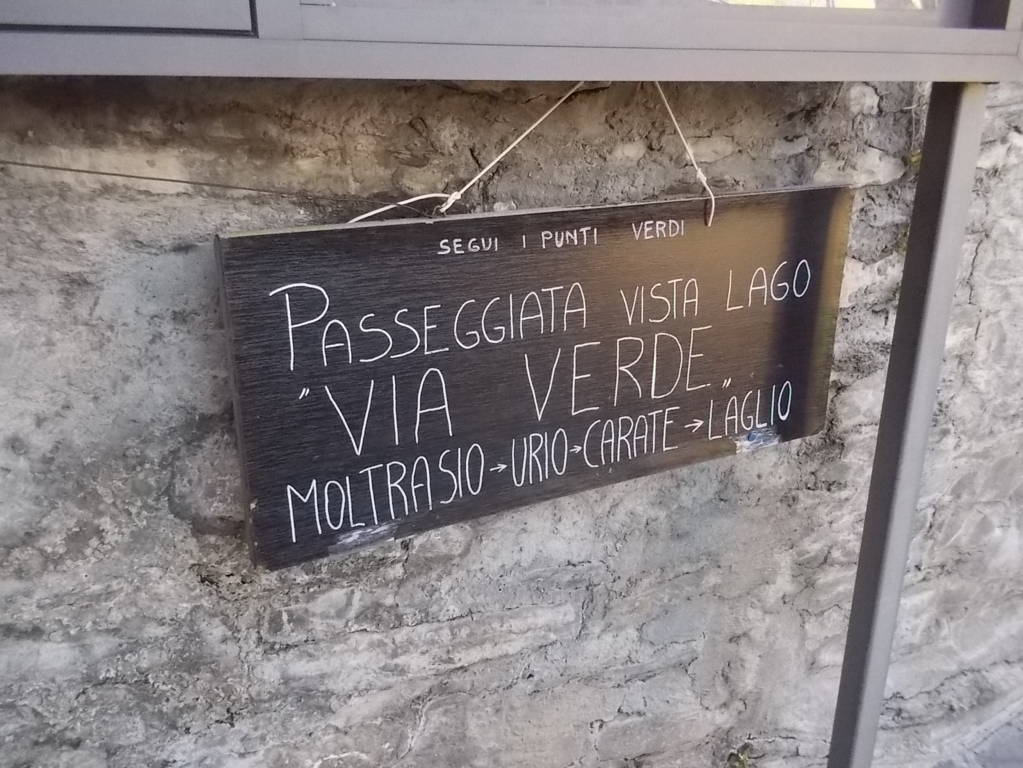 SEGUI I PUNTI VERDI
PASSEGGIATA VISTA LAGO
"VIA VERDE"
MOLTRASIO→URIO→CARATE→LAGLIO